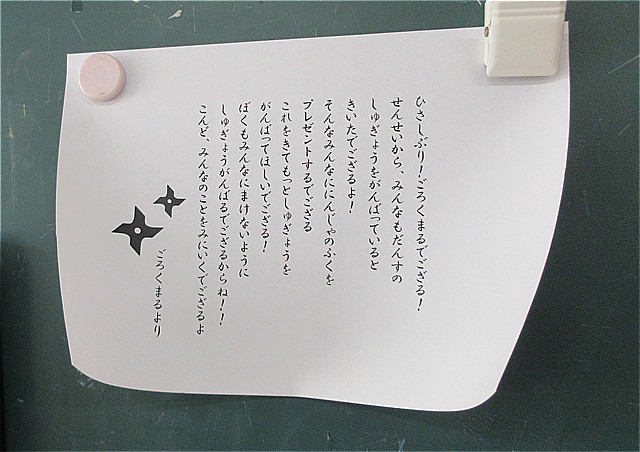 ひさしぶり！ごろくまるでござる！
せんせいから、みんなもだんすの
しゅぎょうをがんばっていると
きいたでござるよ！
そんなみんなににんじゃのふくを
プレゼントするでござる
これをきてもっとしゅぎょうを
がんばってほしいでござる！
ぼくもみんなにまけないように
しゅぎょうがんばるでござるからね！！
こんど、みんなのことをみにいくでござるよ
ごろくまるより